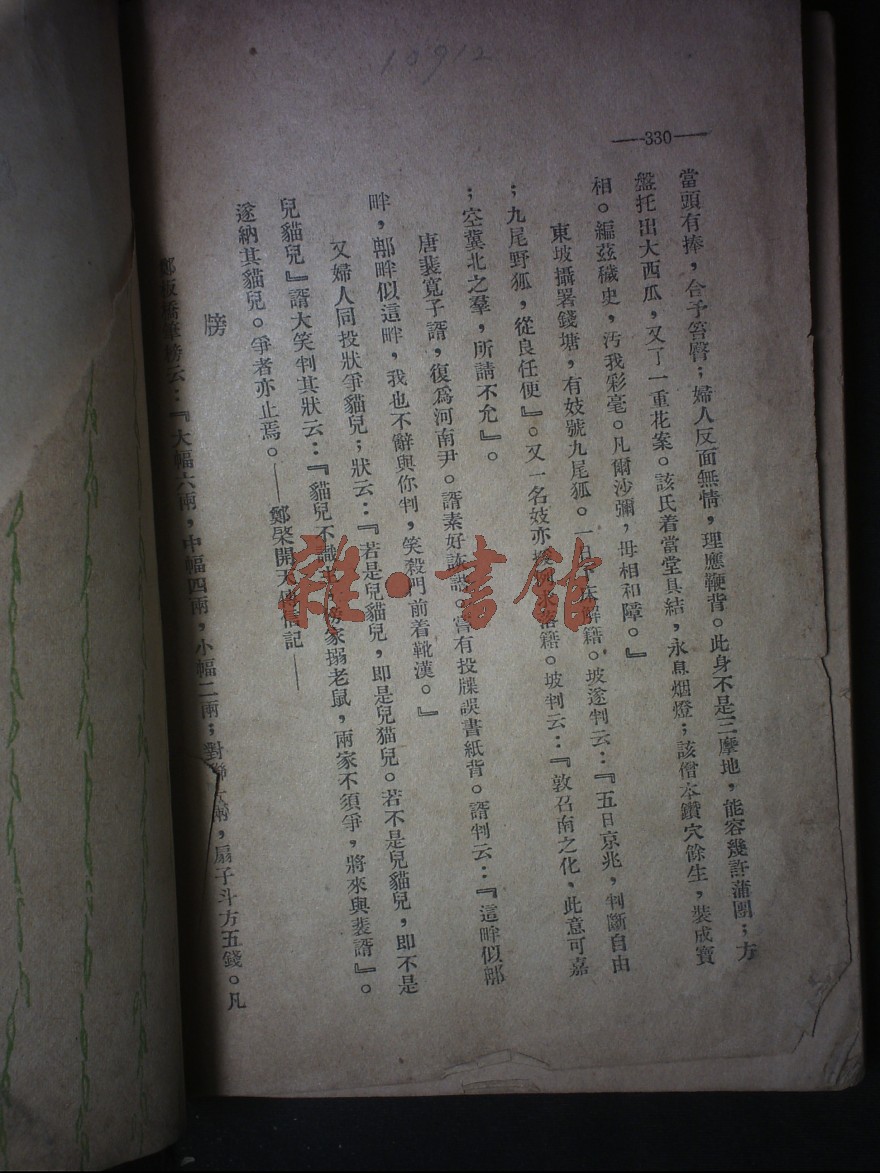 10912
—330—
當頭有捧，合予笞臀；婦人反面無情，理應鞭背。此身不是三摩地，能容幾許蒲團；方
盤托出大西瓜，又了一重花案。該氏着當堂具結，永息烟燈；該僧本鑽穴餘生，裝成寶
相。編茲穢史，汚我彩毫。凡爾沙彌，毋相和障。』
東坡攝署錢塘，有妓號九尾狐。一日解籍。坡遂判云：『五日京兆，判斷自由
；九尾野狐，從良任便』。又一名妓亦落籍。坡判云：『敦召南之化，此意可嘉
；空冀北之羣，所請不允』。
唐裴寬子諝，復爲河南尹。諝素好詼諧。嘗有投牒誤書紙背。諝判云：『這畔似那
畔，那畔似這畔，我也不辭與你判，笑殺門前着靴漢。』
又婦人同投狀爭貓兒；狀云：『若是兒貓兒，即是兒猫兒。若不是兒貓兒，即不是
兒貓兒』諝大笑判其狀云：『貓兒不識主，傍家搦老鼠，兩家不須爭，將來與裴諝』。
遂納其貓兒。爭者亦止焉。——鄭棨開天傳信記——
牓
鄭板橋筆榜云：『大幅六兩，中幅四兩，小幅二兩；對聯一兩，扇子斗方五錢。凡
雜·書館